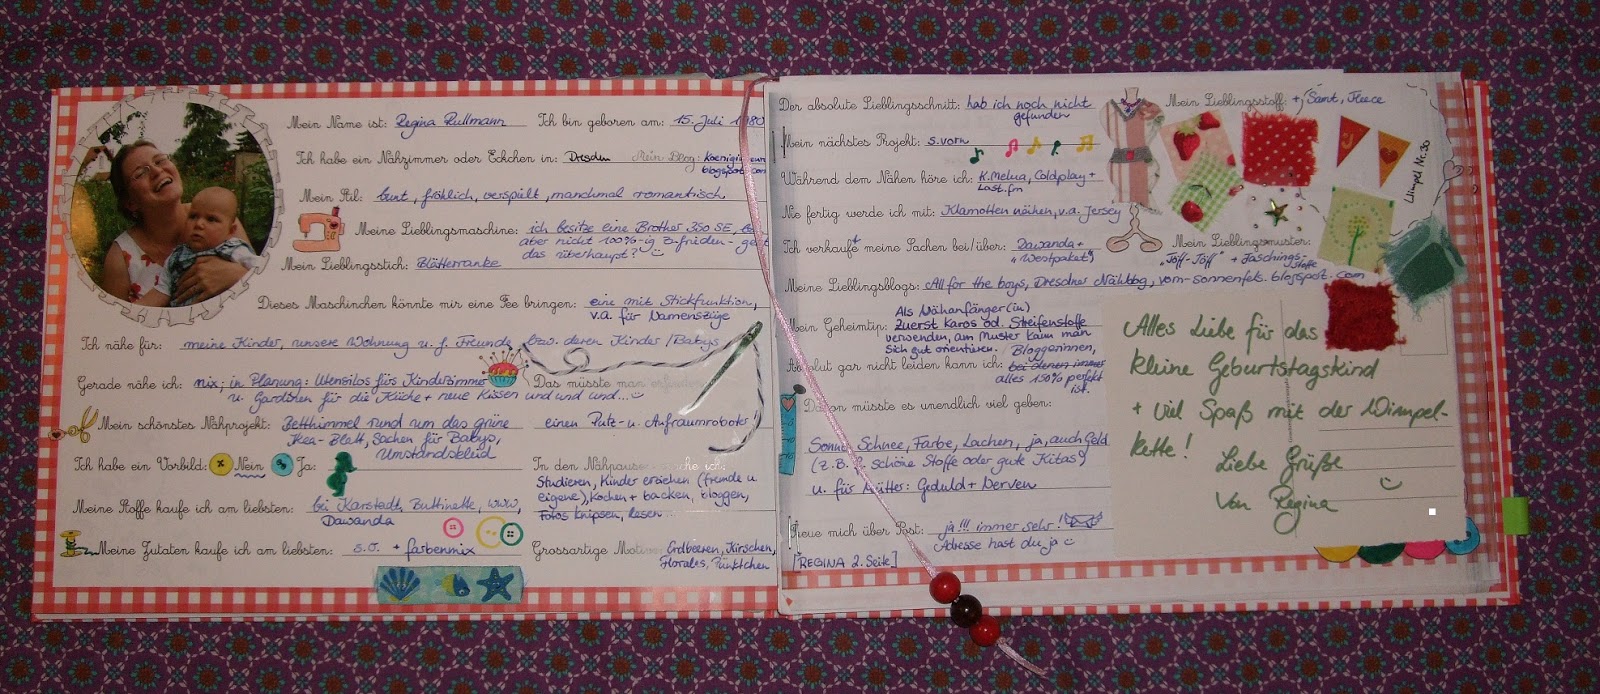 Mein Name ist: Regina Rullmann Ich bin geboren am: 15. Juli 1980
Ich habe ein Nähzimmer oder Eckchen in: Dresden Mein Blog:
blogspot.com
Mein Stil: bunt, fröhlich, verspielt, manchmal romantisch
Meine Lieblingsmaschine: ich besitze eine Brother 350 SE,
aber nicht 100%-ig zufrieden - geht
das überhaupt?
Mein Lieblingsstich: Blätterranke
Dieses Maschinchen könnte mir eine Fee bringen: eine mit Stickfunktion,
v.a. für Namenszüge
Ich nähe für: meine Kinder, unsere Wohnung u. f. Freunde bzw. deren Kinder / Babys
Gerade nähe ich: nix; in Planung: Utensilos fürs Kinderzimmer
u. Gardinen für die Küche + neue Kissen und und und...
Das müsste man
einen Putz- u. Aufraumroboter
Mein schönstes Nähprojekt: Betthimmel rund um das grüne
Ikea-Blatt, Sachen für Babys,
Umstandskleid
Ich habe ein Vorbild: Nein Ja:
Meine Stoffe kaufe ich am liebsten: bei Karstadt, Buttinette, www,
Dawanda
Meine Zutaten kaufe ich am liebsten: s.o. + farbenmix
In den Nähpausen mache ich:
Studieren, Kinder erziehen (fremde u
eigene), Kochen + backen, bloggen,
Fotos knipsen, lesen...
Grossartige Motive: Erdbeeren, Kirschen,
Florales, Pünktchen
Der absolute Lieblingsschnitt: hab ich noch nicht
gefunden
Mein nächstes Projekt: s. vorn
Während dem Nähen höre ich: K. Melua, Coldplay +
Last.fm
Nie fertig werde ich mit: Klamotten nähen, v.a. Jersey
Ich verkaufe meine Sachen bei/über: Dawanda +
"Westpaket"
Meine Lieblingsblogs: All for the boys, Dresdner Nähblog, vom-sonnenfels.blogspot.com
Mein Geheimtip: Als Nähanfänger(in)
zuerst Karos od. Streifenstoffe
verwenden, am Muster kann man
sich gut orientieren.
Absolut gar nicht leiden kann ich: Bloggerinnen,
bei denen immer
alles 150% perfekt
ist.
Davon müsste es unendlich viel geben:
Sonne, Schnee, Farbe, Lachen, ja, auch Geld
(z.B. f. schöne Stoffe oder gute Kitas)
u. für Mütter: Geduld + Nerven
Freue mich über Post: ja!!! immer sehr!
Adresse hast du ja
[REGINA 2. Seite]
Mein Lieblingsstoff: + Samt, Fleece
Wimpel Nr. 30
Mein Lieblingsmuster:
"Töff-Töff" + Faschings-
stoffe
Alles Liebe für das
kleine Geburtstagskind
+ viel Spaß mit der Wimpel-
kette!
Liebe Grüße
Von Regina